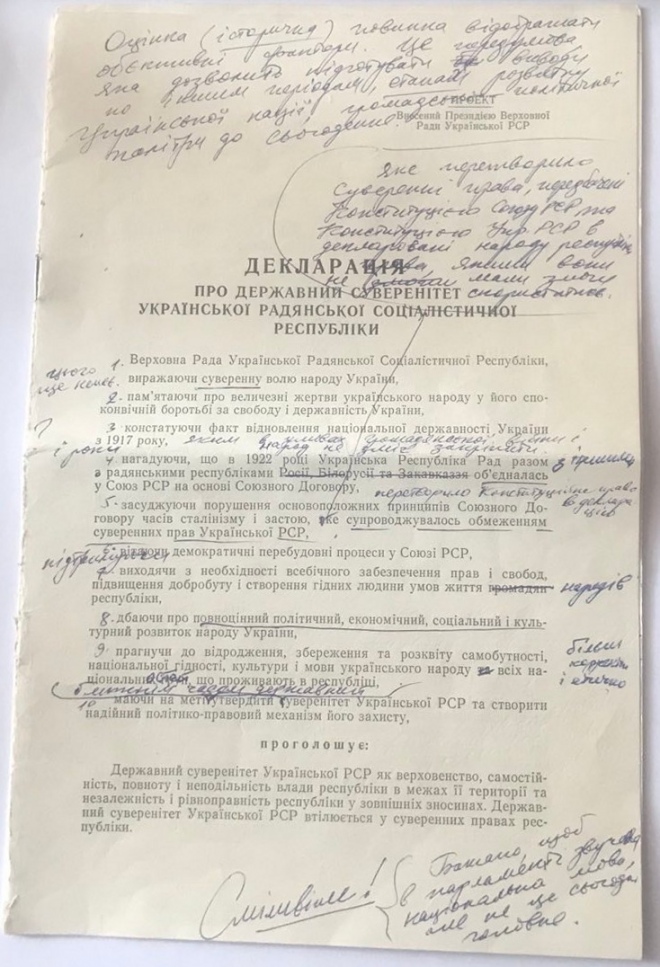 Оцінка (історична) повинна відображати
обєктивні фактори. Це передумова
яка дозволить підготувати виводи
по іншим періодам, етапам розвитку
Української нації, громадсько-політичної
палітри до сьогодення.
ПРОЕКТ
Внесений Президією Верховної
Ради Української РСР
яке перетворило
суверенні права, передбачені
Конституцією Союзу РСР та
Конституцією Укр РСР в
декларовані народу республіки
права, якими вони
не мали змоги
скористатись.
ДЕКЛАРАЦІЯ
ПРО ДЕРЖАВНИЙ СУВЕРЕНІТЕТ
УКРАЇНСЬКОЇ РАДЯНСЬКОЇ СОЦІАЛІСТИЧНОЇ
РЕСПУБЛІКИ
цього
ще немає.
1. Верховна Рада Української Радянської Соціалістичної Республіки,
виражаючи суверенну волю народу України,
2. пам'ятаючи про величезні жертви українського народу у його спо-
конвічній боротьбі за свободу і державність України,
3. констатуючи факт відновлення національної державності України
?
з 1917 року, яким в умовах громадянської війни і
і роки народ не зміг закріпити.
4. нагадуючи, що в 1922 році Українська Республіка Рад разом
з радянськими республіками Росії, Білорусії та Закавказзя об'єдналась
з іншими
у Союз РСР на основі Союзного Договору,
перетворило Конституційне право
в декларацію
5. засуджуючи порушення основоположних принципів Союзного До-
говору часів сталінізму і застою, яке супроводжувалось обмеженням
суверенних прав Української РСР,
підтримуючи
6. вітаючи демократичні перебудовні процеси у Союзі РСР,
7. виходячи з необхідності всебічного забезпечення прав і свобод,
підвищення добробуту і створення гідних людини умов життя громадян народів
республіки,
8. дбаючи про повноцінний політичний, економічний, соціальний і куль-
турний розвиток народу України,
9. прагнучи до відродження, збереження та розквіту самобутності,
національної гідності, культури і мови українського народу і всіх на-
ціональностей, що проживають в республіці,
більш
коректно
і етично
10. маючи на меті утвердити суверенітет Української РСР та створити
державний
надійний політико-правовий механізм його захисту,
проголошує:
Державний суверенітет Української РСР як верховенство, самостій-
ність, повноту і неподільність влади республіки в межах її території та
незалежність і рівноправність республіки у зовнішніх зносинах. Держав-
ний суверенітет Української РСР втілюється у суверенних правах рес-
публіки.
Сміливіше!
Бажано, щоб
в парламенті звучала
національна мова,
але не це сьогодні
головне.